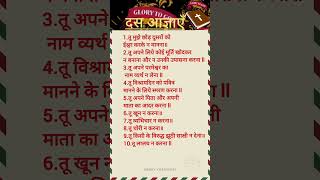 GLORY TO GOD
दस आज्ञाएं
1.तू मुझे छोड़ दूसरों को
ईश्वर करके न मानना॥
2.तू अपने लिये कोई मूर्ति खोदकर
न बनाना और न उनकी उपासना करना॥
3.तू अपने परमेश्वर का
नाम व्यर्थ न लेना॥
4.तू विश्रामदिन को पवित्र
मानने के लिये स्मरण करना॥
5.तू अपने पिता और अपनी
माता का आदर करना॥
6.तू खून न करना॥
7.तू व्यभिचार न करना॥
8.तू चोरी न करना॥
9.तू किसी के विरुद्ध झूठी साक्षी न देना॥
10.तू लालच न करना॥